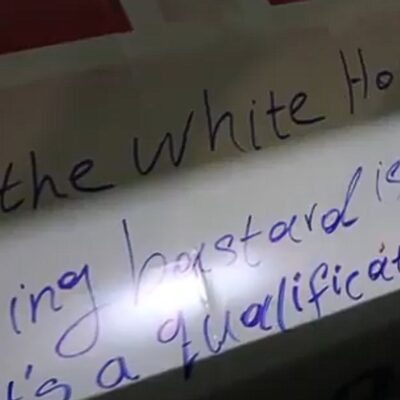 the White Ho
ing bastard is
's a qualificat